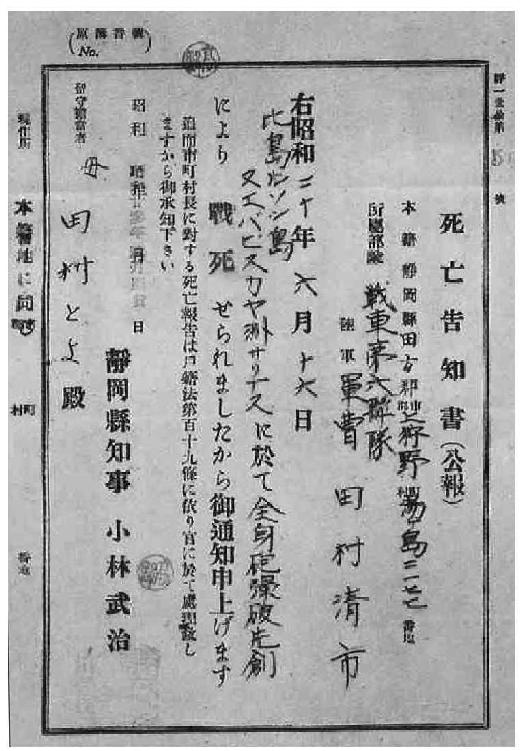 原簿番號
No.
死亡告知書（公報）
本籍 靜岡縣田方郡上狩野村湯ヶ島
所屬部隊 戦車第六聯隊
陸軍軍曹 田村清市
右昭和二十年六月十六日
比島ルソン島
ヌエバビスカヤ州サリナスに於て全身砲爆破片創
により 戰死 せられましたから御通知申上げます
追而市町村長に対する死亡報告は戸籍法第百十九條に依り官に於て處理致し
ますから御承知下さい
昭和 年 月 日
靜岡縣知事 小林武治
留守擔當者
母 田村とよ殿
本籍地に同じ
町村
番地